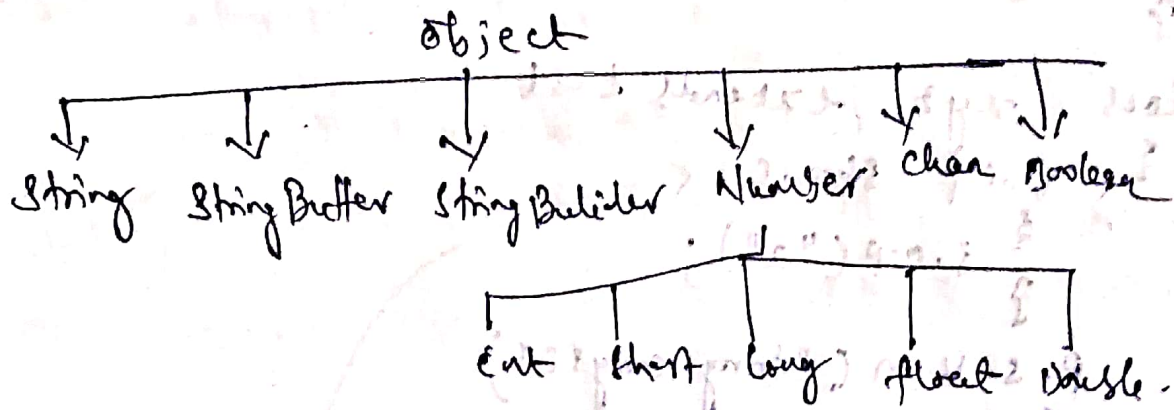 Object
String StringBuffer StringBulider Number Char Boolean
Int Short Long float Double.